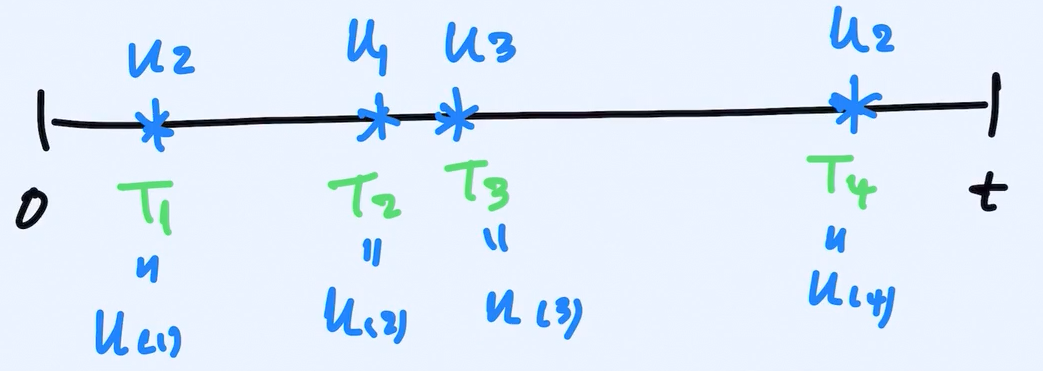 U2 U1 U3 U2
0 T1 T2 T3 T4 t
= = = =
U(1) U(2) U(3) U(4)